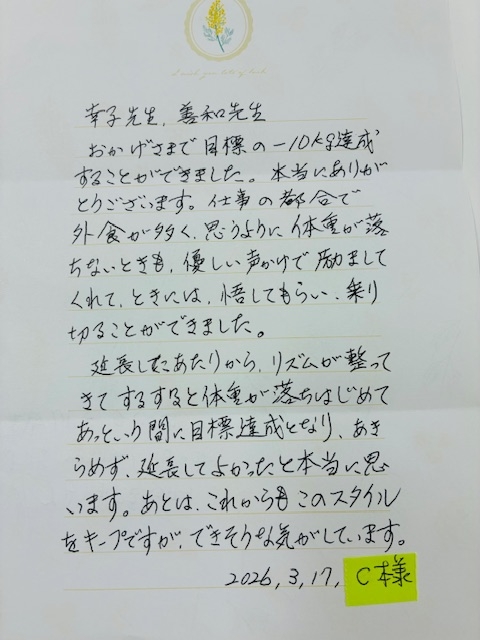 幸子先生、善和先生
おかげさまで目標の-10kg達成
することができました。本当にありが
とうございます。仕事の都合で
外食が多く、思うように体重が落
ちないときも、優しい声かけで励まして
くれて、ときには、悟してもらい、乗り
切ることができました。
延長したあたりから、リズムが整って
きてするすると体重が落ちはじめて
あっという間に目標達成となり、あき
らめず、延長してよかったと本当に思
います。あとは、これからもこのスタイル
をキープですが、できそうな気がしています。
2026,3,17,
C様